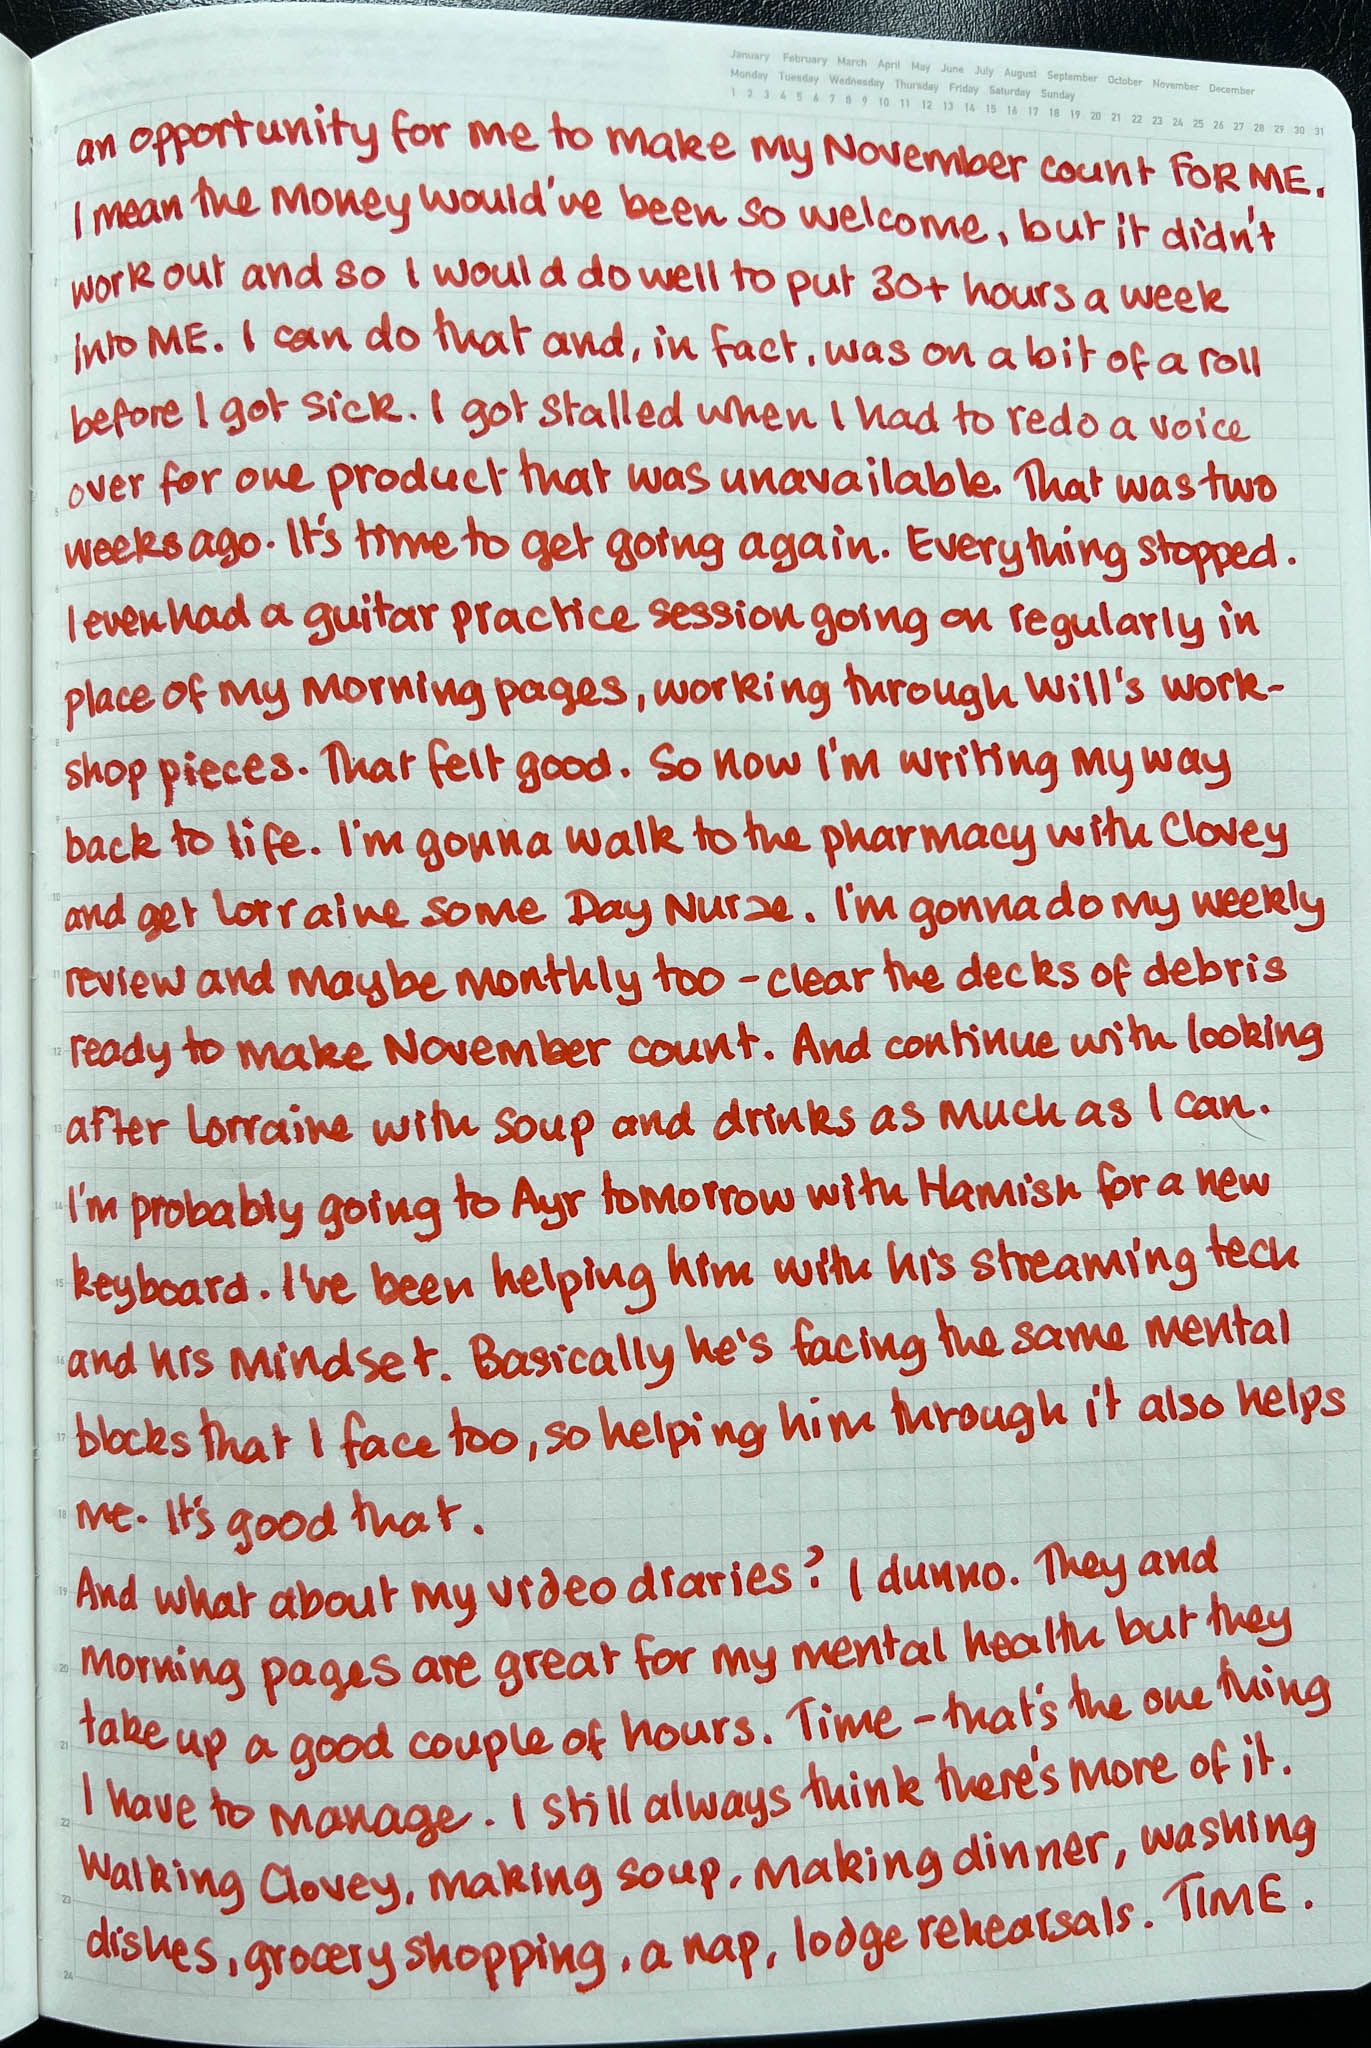 January February March April May June July August September October November December
Monday Tuesday Wednesday Thursday Friday Saturday Sunday
1 2 3 4 5 6 7 8 9 10 11 12 13 14 15 16 17 18 19 20 21 22 23 24 25 26 27 28 29 30 31
an opportunity for me to make my November count FOR ME.
I mean the money would've been so welcome, but it didn't
work out and so I would do well to put 30+ hours a week
into ME. I can do that and, in fact, was on a bit of a roll
before I got sick. I got stalled when I had to redo a voice
over for one product that was unavailable. That was two
weeks ago. It's time to get going again. Everything stopped.
I even had a guitar practice session going on regularly in
place of my morning pages, working through Will's work-
shop pieces. That felt good. So now I'm writing my way
back to life. I'm gonna walk to the pharmacy with Clovey
and get Lorraine some Day Nurse. I'm gonna do my weekly
review and maybe monthly too - clear the decks of debris
ready to make November count. And continue with looking
after Lorraine with soup and drinks as much as I can.
I'm probably going to Ayr tomorrow with Hamish for a new
keyboard. I've been helping him with his streaming tech
and his mindset. Basically he's facing the same mental
blocks that I face too, so helping him through it also helps
me. It's good that.
And what about my video diaries? I dunno. They and
morning pages are great for my mental health but they
take up a good couple of hours. Time - that's the one thing
I have to manage. I still always think there's more of it.
Walking Clovey, making soup, making dinner, washing
dishes, grocery shopping, a nap, lodge rehearsals. TIME.